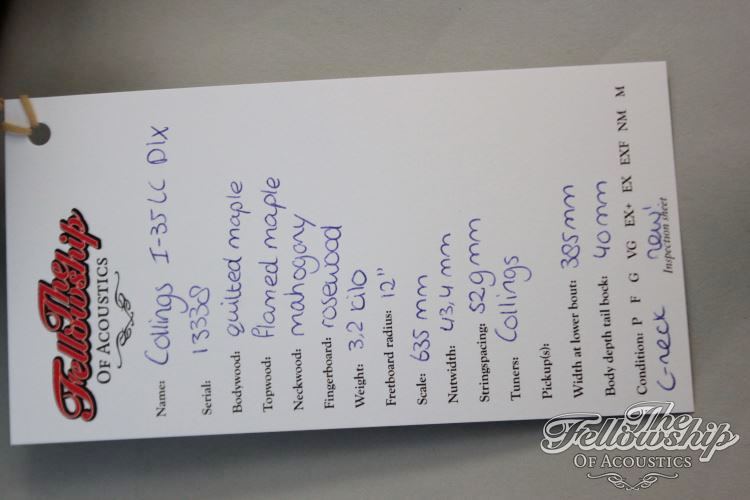 The
Fellowship
OF ACOUSTICS
Name: Collings I-35 LC Dlx
Serial: 13338
Bodywood: quilted maple
Topwood: flamed maple
Neckwood: mahogony
Fingerboard: rosewood
Weight: 3,2 kilo
Fretboard radius: 12"
Scale: 635 mm
Nutwidth: 43,4 mm
Stringspacing: 52,9 mm
Tuners: Collings
Pickup(s):
Width at lower bout: 385 mm
Body depth tail bock: 40 mm
Condition: P F G VG EX+ EX EXF NM M
C-neck new!
Inspection sheet
The
Fellowship
OF ACOUSTICS